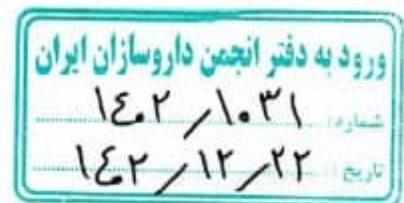 ورود به دفتر انجمن داروسازان ایران
شماره: ۱۴۰۲/۱۰۳۱
تاریخ: ۱۴۰۲/۱۲/۲۲